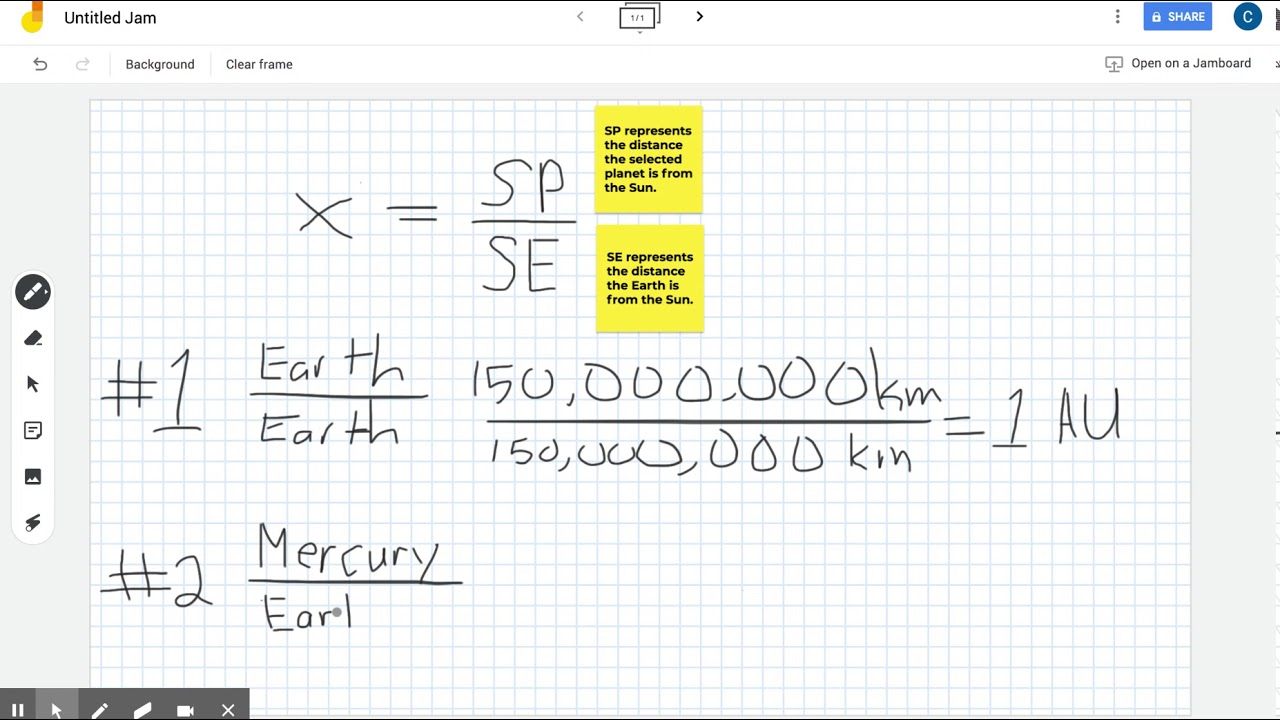 Untitled Jam
1/1
SHARE
C
Background
Clear frame
Open on a Jamboard
x = SP
SE
SP represents
the distance
the selected
planet is from
the Sun.
SE represents
the distance
the Earth is
from the Sun.
#1 Earth 150,000,000 km = 1 AU
Earth 150,000,000 km
#2 Mercury
Earl